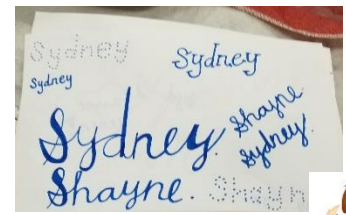 Sydney
Sydney
Sydney
Sydney.
Shayne
Sydney.
Shayne.
Shayn